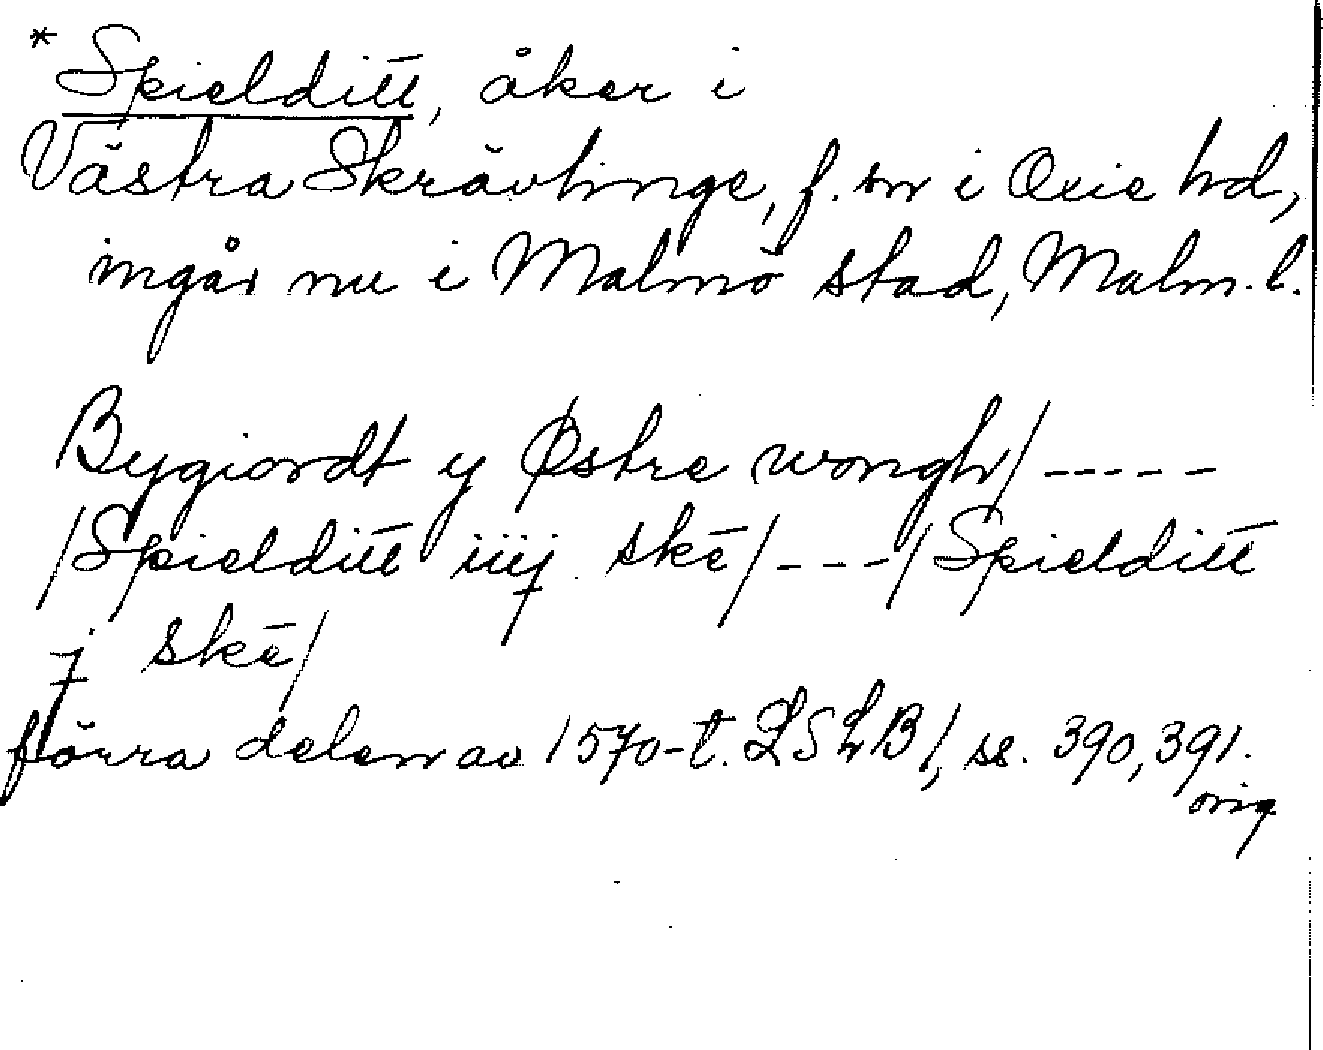 * Spielditt, åker i
Västra Skrävlinge, f. sn i Oxie hd,
ingår nu i Malmö stad, Malm. l.
Bygiordt y Østre wongh/ -----
/Spielditt iiij skē/ ---/Spielditt
j skē/
förra delen av 1570-t. LSLB1, ss. 390, 391.
orig